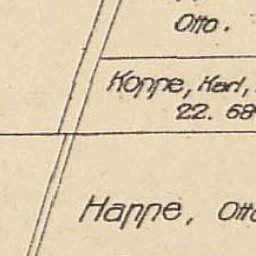 Otto.
Koppe, Karl,
22. 68
Happe, Otto